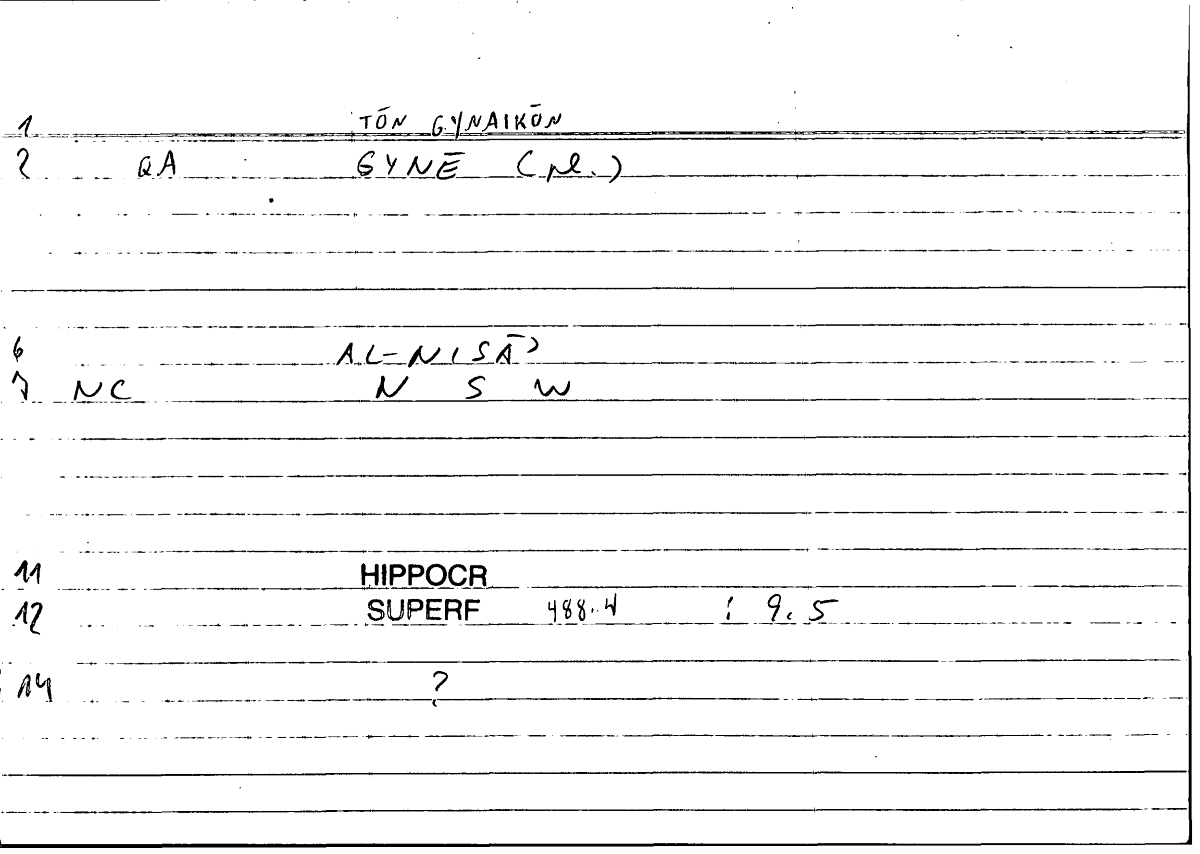 1 TŌN GYNAIKŌN
2 QA GYNĒ (pl.)
6 AL-NISĀʾ
7 NC N S W
11 HIPPOCR
12 SUPERF 488.4 : 9.5
14 ?